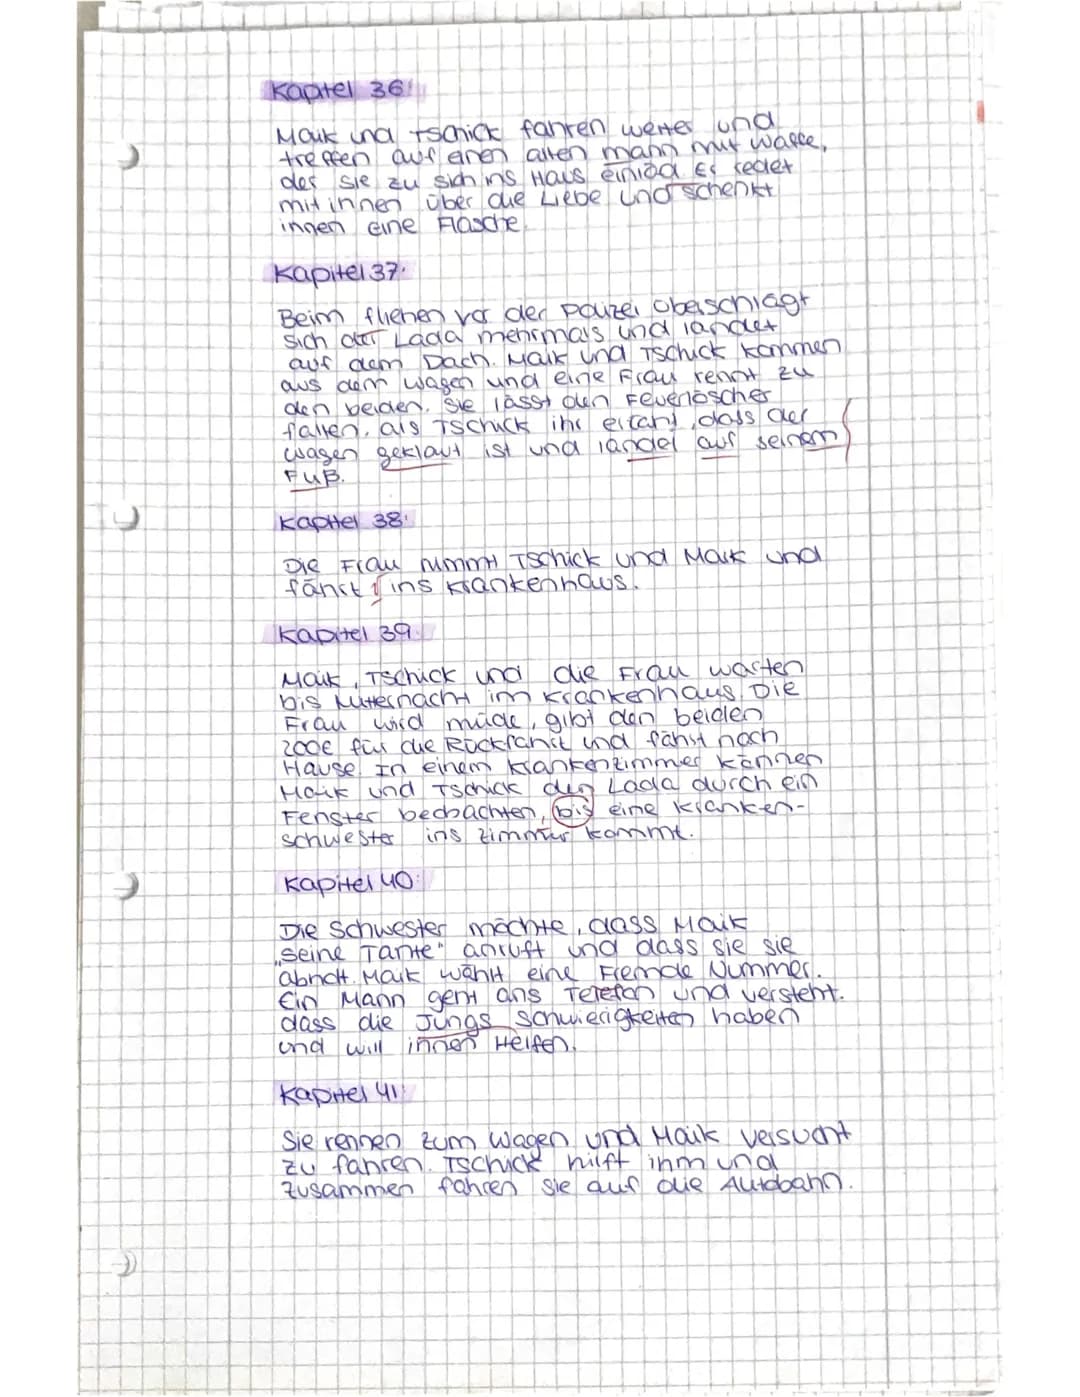 Kapitel 36:
Maik und Tschick fahren weiter und
treffen auf einen alten mann mit Waffe,
der sie zu sich ins Haus einläd Er redet
mit ihnen über die Liebe und schenkt
ihnen eine Flasche.
Kapitel 37:
Beim fliehen vor der Polizei überschlägt
sich der Lada mehrmals und landet
auf dem Dach. Maik und Tschick kommen
aus dem Wagen und eine Frau rennt zu
den beiden. Sie lässt den Feuerlöscher
fallen, als Tschick ihr erfährt, dass der
Wagen geklaut ist und landet auf seinem
Fuß.
Kapitel 38:
Die Frau nimmt Tschick und Maik und
fährt ins Krankenhaus.
Kapitel 39:
Maik, Tschick und die Frau warten
bis Mitternacht im Krankenhaus. Die
Frau wird müde, gibt den beiden
200€ für die Rückfahrt und fährt nach
Hause. In einem Krankenzimmer können
Maik und Tschick den Lada durch ein
Fenster beobachten, bis eine Kranken-
schwester ins Zimmer kommt.
Kapitel 40:
Die Schwester möchte, dass Maik
„seine Tante" anruft und dass sie sie
abholt. Maik wählt eine Fremde Nummer.
Ein Mann geht ans Telefon und versteht.
dass die Jungs Schwierigkeiten haben
und will ihnen Helfen.
Kapitel 41:
Sie rennen zum Wagen und Maik versucht
zu fahren. Tschick hilft ihm und
zusammen fahren sie auf die Autobahn.